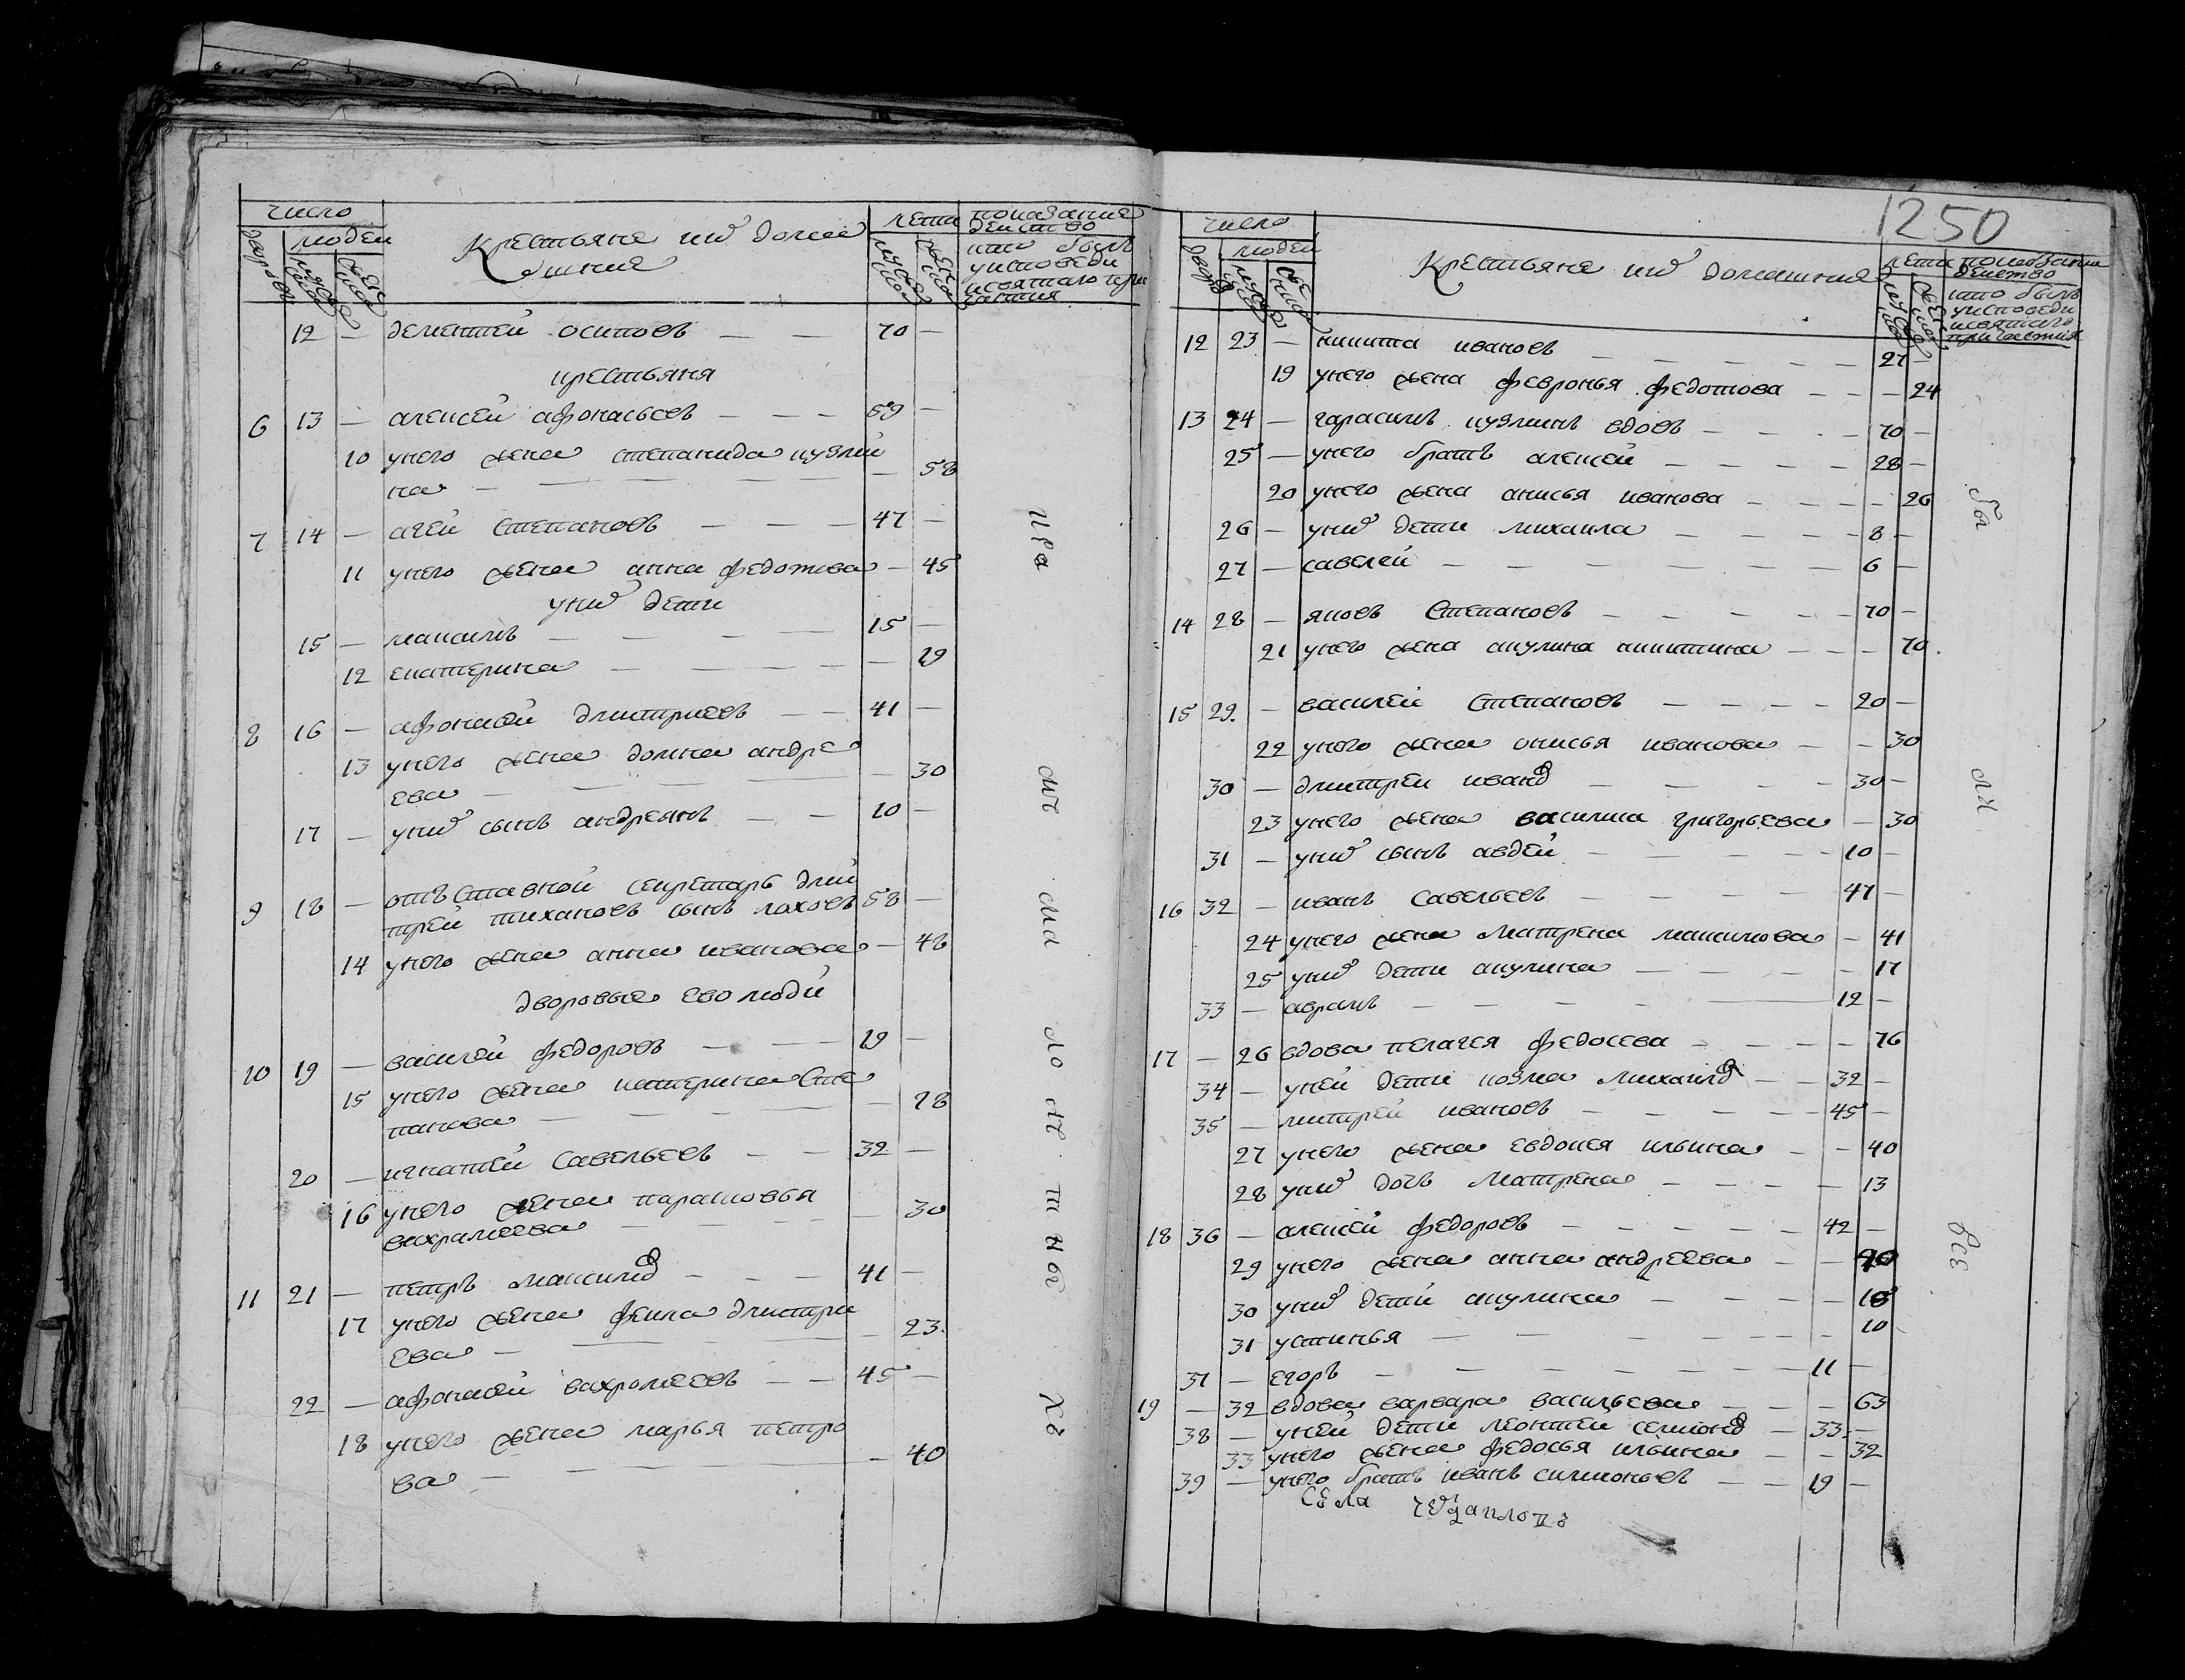 число
людей
дворовъ
мужеска
женска
Крестьяне ихъ дома
шние
лета
мужеска
женска
показание
действо
кто былъ
уисповеди
исвятаго при
частия
12 — дементей осиповъ — — 70 —
крестьяня
6 13 — алексей афонасьевъ — — — 59 —
10 унего жена степанида кузми
на — — — — — — 58
7 14 — агей Степановъ — — — 47 —
11 унего жена анна федотова — 45
унихъ дети
15 — максимъ — — — — 15 —
12 екатерина — — — — — 19
8 16 — афонасей дмитриевъ — — 41 —
13 унего жена домна андре
ева — — — — 30
17 — унихъ сынъ андреянъ — — 10 —
9 18 — отъставной секретарь дми
трей тихановъ сынъ лаховъ 58 —
14 унего жена анна иванова — 48
дворовые ево люди
10 19 — василей федоровъ — — — 19 —
15 унего жена катерина Сте
панова — — — — — 18
20 — игнатей Савельевъ — — 32 —
16 унего жена парасковья
вахрамеева — — — 30
11 21 — петръ максимов — — — 41 —
17 унего жена фекла дмитри
ева — — — 23
22 — афонасей вахромеевъ — — 45 —
18 унего жена марья петро
ва — — — 40
1250
число
людей
дворовъ
мужеска
женска
Крестьяне ихъ домашния
лета
мужеска
женска
показвание
действо
кто былъ
уисповеди
исвятаго
причастия
12 23 — никита ивановъ — — — — — 27 —
19 унего жена февронья федотова — — — 24
13 24 — гарасимъ кузминъ вдовъ — — — — 70 —
25 — унего братъ алексей — — — — 28 —
20 унего жена анисья иванова — — — — 26
26 — унихъ дети михаила — — — — 8 —
27 — савелей — — — — — — — 6 —
14 28 — яковъ Степановъ — — — — — 70 —
21 унего жена акулина никитина — — — 70
15 29 — василей Степановъ — — — — 20 —
22 унего жена анисья иванова — — 30
30 — дмитрей иванов — — — — 30 —
23 унего жена василиса григорьева — 30
31 — унихъ сынъ авдей — — — — — 10 —
16 32 — иванъ Савельевъ — — — — 47 —
24 унего жена матрена максимова — 41
25 унихъ дети акулина — — — — 17
33 — аврамъ — — — — — 12 —
17 — 26 вдова пелагея федосева — — — — 76
34 — уней дети козма михаилов — — 32 —
35 — митрей ивановъ — — — — — 45 —
27 унего жена евдокея ильина — — 40
28 унихъ дочь матрена — — — — 13
18 36 — алексей федоровъ — — — — — 42 —
29 унего жена анна андреева — — 40
30 унихъ дети акулина — — — — 16
31 устинья — — — — — — 10
37 — егоръ — — — — — — — 11 —
19 — 32 вдова варвара васильева — — — 63
38 — уней дети леонтей семионов — 33 —
33 унего жена федосья ильина — — 32
39 — унего братъ иванъ симионовъ — — 19 —
Села
бы
ли
все